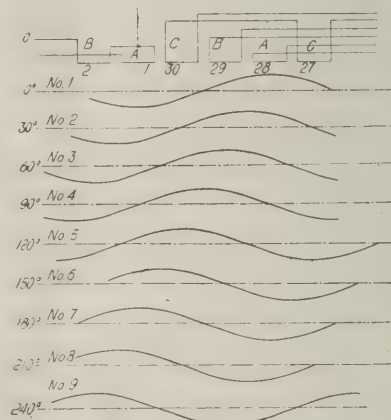 B A C B A C
2 1 30 29 28 27
0° No.1
30° No.2
60° No 3
90° No.4
120° No 5
150° No.6
180° No 7
210° No 8
240° No 9